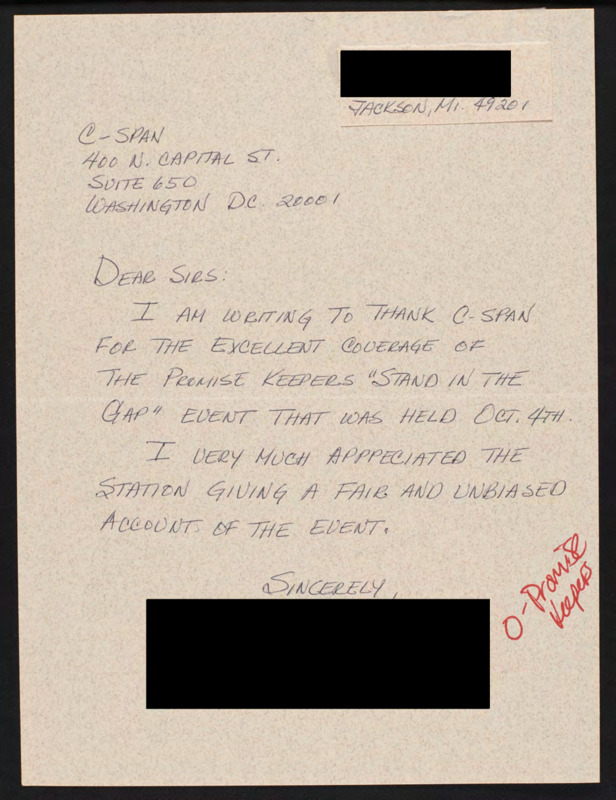 JACKSON, MI. 49201
C-SPAN
400 N. CAPITAL ST.
SUITE 650
WASHINGTON DC. 20001
DEAR SIRS:
I AM WRITING TO THANK C-SPAN
FOR THE EXCELLENT COVERAGE OF
THE PROMISE KEEPERS "STAND IN THE
GAP" EVENT THAT WAS HELD OCT. 4TH.
I VERY MUCH APPRECIATED THE
STATION GIVING A FAIR AND UNBIASED
ACCOUNT OF THE EVENT.
SINCERELY,
O-Promise
Keepers